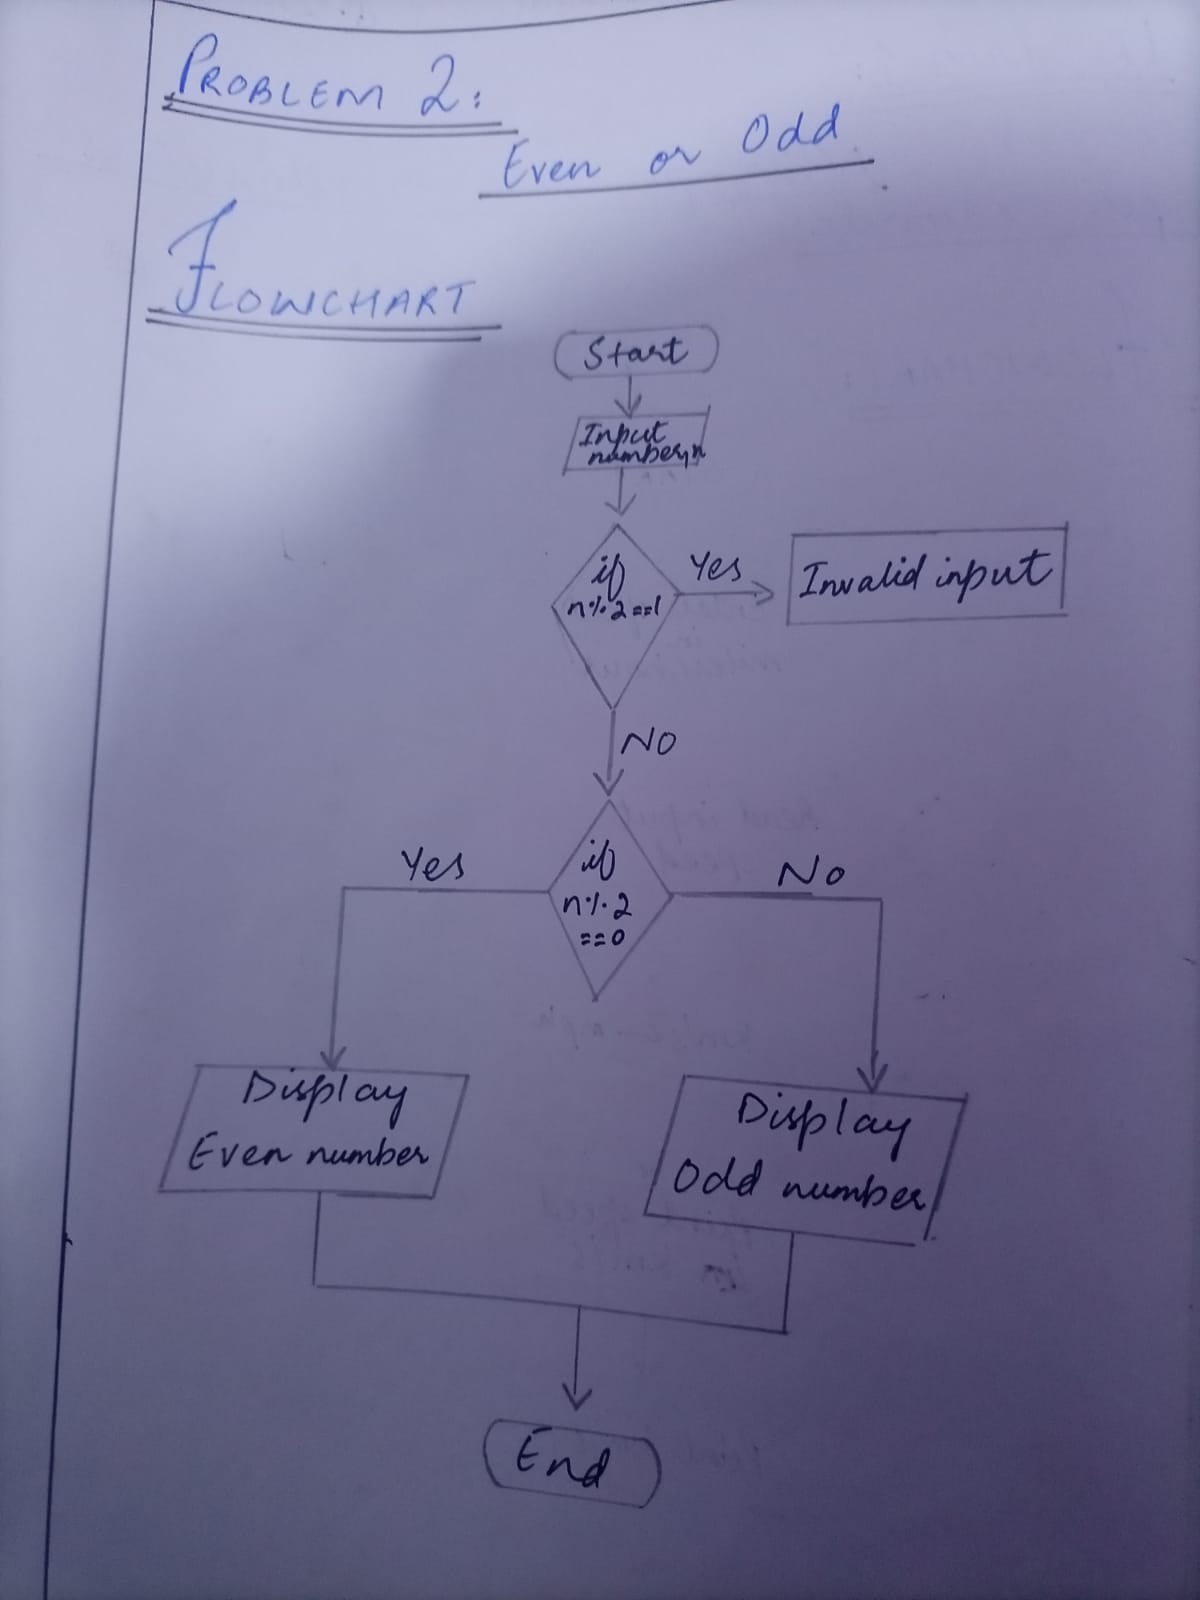 PROBLEM 2:
Even or Odd
FLOWCHART
Start
Input
number, n
if
n%2==1
Yes
Invalid input
NO
if
n%2
==0
Yes
No
Display
Even number
Display
Odd number
End